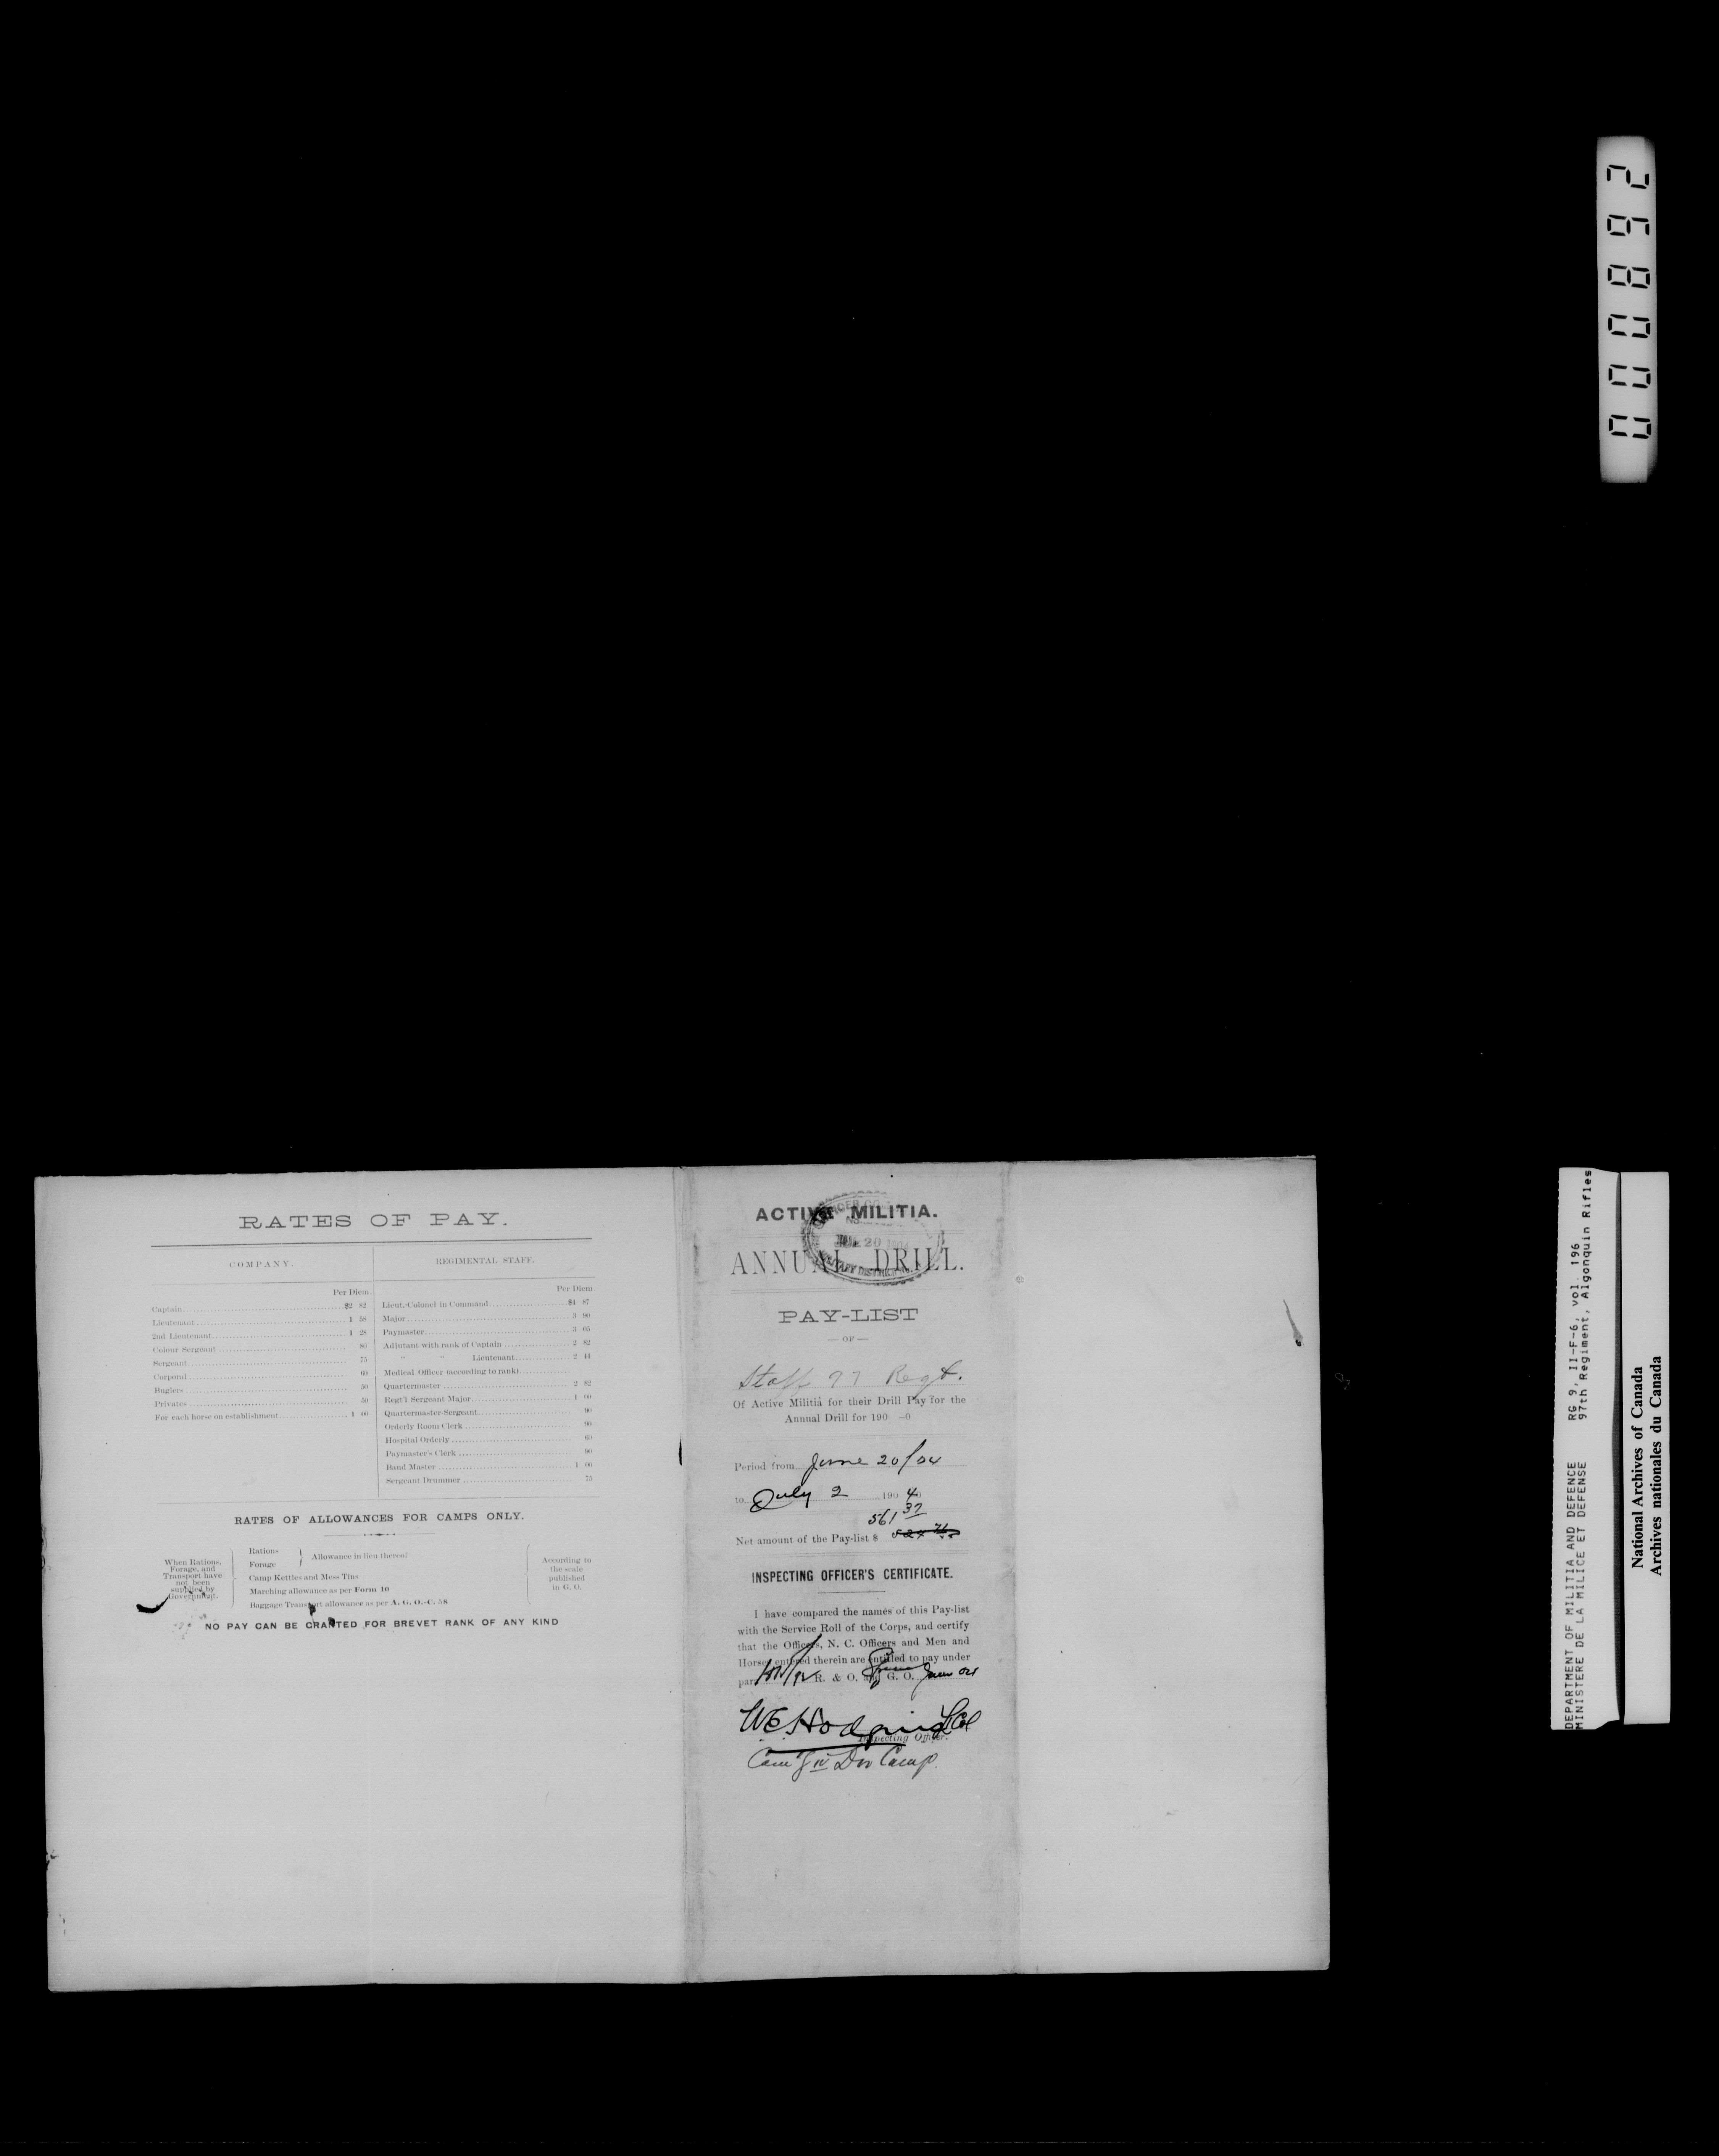 RATES OF PAY.
COMPANY.
Per Diem.
Captain $2 82
Lieutenant 1 58
2nd Lieutenant 1 28
Colour Sergeant 80
Sergeant 75
Corporal 60
Buglers 50
Privates 50
For each horse on establishment 1 00
REGIMENTAL STAFF.
Per Diem.
Lieut.-Colonel in Command $4 87
Major 3 90
Paymaster 3 05
Adjutant with rank of Captain 2 82
" " Lieutenant 2 44
Medical Officer (according to rank)
Quartermaster 2 82
Regt'l Sergeant Major 1 00
Quartermaster-Sergeant 90
Orderly Room Clerk 60
Hospital Orderly 60
Paymaster's Clerk 90
Band Master 1 00
Sergeant Drummer 75
RATES OF ALLOWANCES FOR CAMPS ONLY.
When Rations,
Forage, and
Transport have
not been
supplied by
Government.
Rations
Forage
Allowance in lieu thereof
Camp Kettles and Mess Tins
Marching allowance as per Form 10
Baggage Transport allowance as per A. G. O.-C. 58
According to
the scale
published
in G. O.
NO PAY CAN BE GRANTED FOR BREVET RANK OF ANY KIND
ACTIVE MILITIA.
ANNUAL DRILL.
20 1904
MILITARY DISTRICT
PAY-LIST
— OF —
Staff 97 Regt.
Of Active Militia for their Drill Pay for the
Annual Drill for 190 -0
Period from June 20/04
to July 2 1904
561 37
Net amount of the Pay-list $
INSPECTING OFFICER'S CERTIFICATE.
I have compared the names of this Pay-list
with the Service Roll of the Corps, and certify
that the Officers, N. C. Officers and Men and
Horses entered therein are entitled to pay under
par R. & O. and G. O. June 04
WE Hodgins LCol
Inspecting Officer.
Com'g Div Camp
000892
DEPARTMENT OF MILITIA AND DEFENCE RG 9, II-F-6, vol. 196
MINISTERE DE LA MILICE ET DEFENSE 97th Regiment, Algonquin Rifles
National Archives of Canada
Archives nationales du Canada